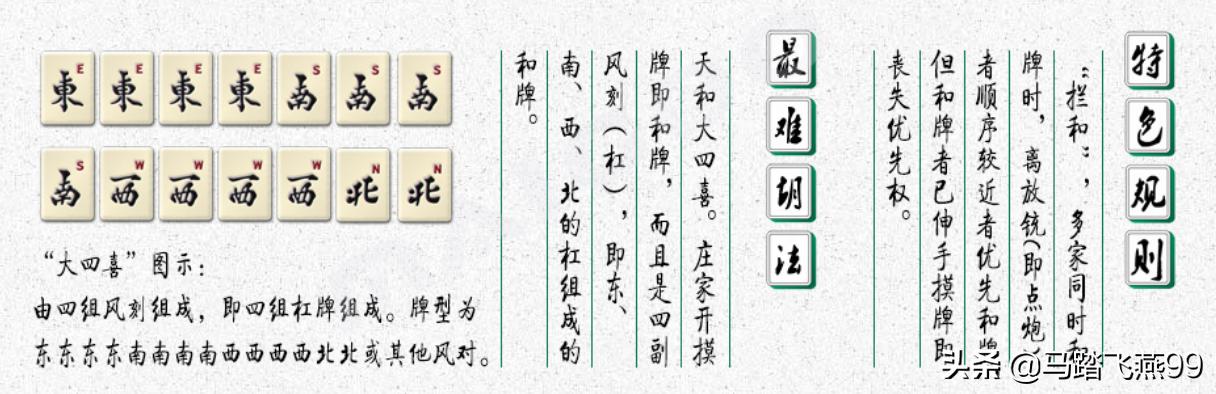 特色规则
“拦和”，多家同时和
牌时，离放铳(即点炮)
者顺序较近者优先和牌
但和牌者已伸手摸牌即
丧失优先权。
最难胡法
天和大四喜。庄家开摸
牌即和牌，而且是四副
风刻（杠），即东、
南、西、北的杠组成的
和牌。
東E 東E 東E 東E 南S 南S 南S
南S 西W 西W 西W 西W 北N 北N
“大四喜”图示：
由四组风刻组成，即四组杠牌组成。牌型为
东东东东南南南南西西西西北北或其他风对。
头条 @马踏飞燕99